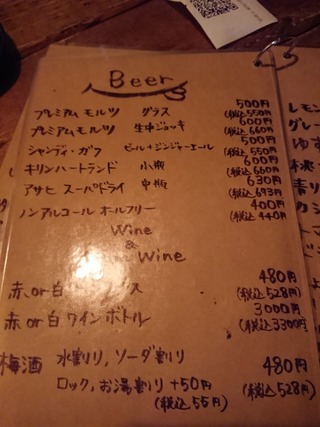 Beer
プレミアムモルツ グラス 500円
(税込550円)
プレミアムモルツ 生中ジョッキ 600円
(税込660円)
シャンディ・ガフ ビール+ジンジャーエール 500円
(税込550円)
キリンハートランド 小瓶 600円
(税込660円)
アサヒ スーパードライ 中瓶 630円
(税込693円)
ノンアルコール オールフリー 400円
(税込440円)
Wine
&
Wine
赤、or 白 ス 480円
(税込528円)
赤 or 白 ワイン ボトル 3000円
(税込3300円)
梅酒 水割り、ソーダ割り 480円
ロック、お湯割り +50円 (税込528円)
(税込55円)
レモン
グレー
ゆず